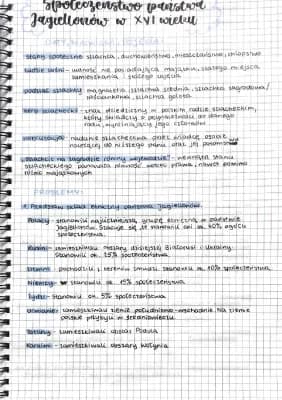 Społeczeństwo państwa
Jagiellonów w XVI wieku
stany społeczne szlachta, duchowieństwo, mieszczaństwo, chłopstwo
ludzie luźni - ludność nie posiadająca majątku, stałego miejsca
zamieszkania i stałego zajęcia
podział szlachty - magnateria, szlachta średnia, szlachta zagrodowa/
szlachta gołota
herb szlachecki - znak dziedziczny w polskim rodzie szlacheckim,
który świadczy o przynależności do danego
rodu, wyróżniający jego członków
nobilitacja - nadanie szlachectwa przez władcę osobie
należącej do niższego stanu oraz jej potomstwu
"szlachcic na zagrodzie równy wojewodzie" - wewnątrz stanu
szlacheckiego panowała równość wobec prawa, nawet pomimo
różnic majątkowych
PROBLEMY:
1. Przedstaw skład etniczny państwa Jagiellonów.
Polacy - stanowili najliczniejszą grupę etniczną w państwie
Jagiellonów. Szacuje się, że stanowili oni ok. 40% ogółu
społeczeństwa.
Rusini - zamieszkiwali obszary dzisiejszej Białorusi i Ukrainy.
Stanowili ok. 25% społeczeństwa.
Litwini - pochodzili z terenów Żmudzi. Stanowili ok. 10% społeczeństwa
Niemcy - stanowili ok. 15% społeczeństwa
Żydzi - Stanowili ok. 5% społeczeństwa
Ormianie - zamieszkiwali ziemie południowo-wschodnie. Na ziemie
polskie przybyli w średniowieczu.
Tatarzy - zamieszkiwali
Karaimi - zamieszkiwali obszary Wołynia